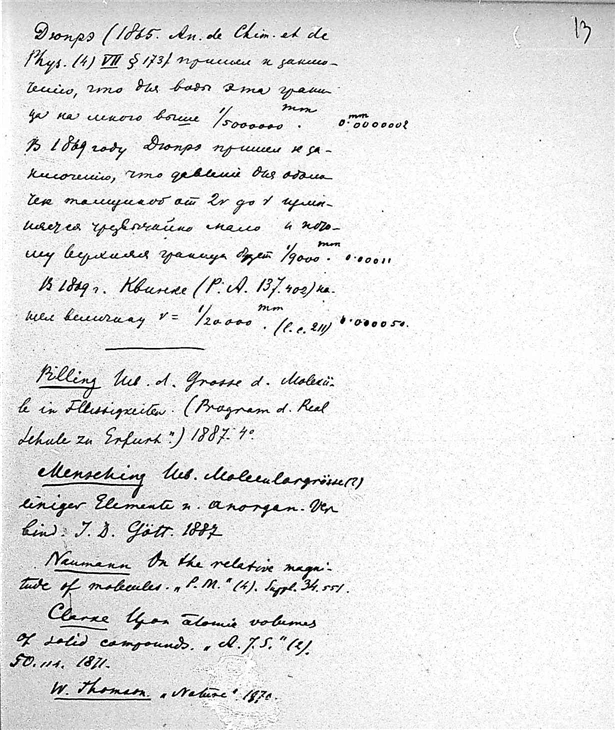 13
Дюпрэ (1865. An. de Chim. et de
Phys. (4) VII § 173) пришел к заклю-
чению, что для воды эта грани-
ца на много выше 1/5000000 mm. 0.mm0000002
В 1869 году Дюпрэ пришел к за-
ключению, что давление для оболо-
чек толщиной от 2r до r
чрезвычайно мало и пото-
му верхняя граница будет 1/9000 mm. 0.00011
В 1869 г. Квинке (P. A. 137. 402) на-
шел величину r = 1/20000 mm. (l. c. 211) 0.000050.
Billing Ueb. d. Grosse d. Molekü-
le in Flüssigkeiten. (Program d. Real
Schule zu Erfurt.") 1887. 4°
Mensching Ueb. Moleculargrösse (?)
einiger Elemente u. anorgan. Ver
bind. I. D. Gött. 1887
Naumann On the relative magni-
tude of molecules. „P. M." (4). Suppl. 34. 551.
Clarke Upon atomic volumes
of solid compounds. „A. J. S." (2).
50. 114. 1871.
W. Thomson. „Nature". 1870.